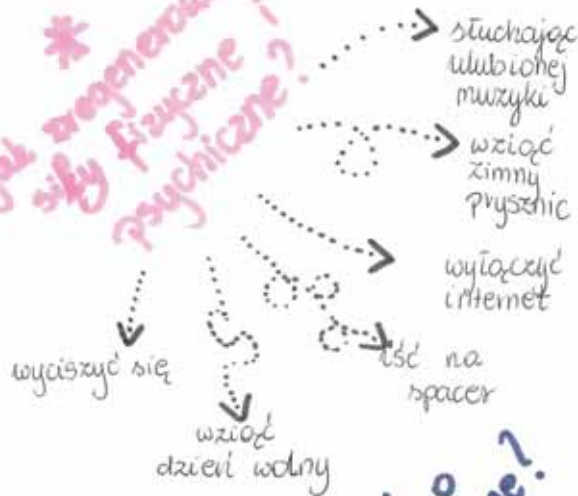 *
jak zregenerować
siły fizyczne i
psychiczne?
słuchając
ulubionej
muzyki
wziąć
zimny
prysznic
wyłączyć
internet
iść na
spacer
wziąć
dzień wolny
wyciszyć się